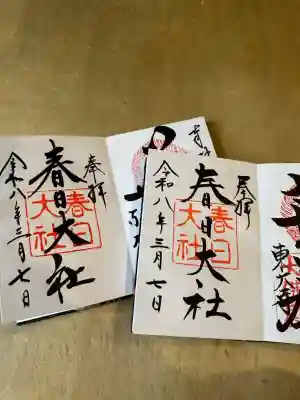 奉拝
春日大社
春日大社
令和八年三月七日
奉拝
春日大社
春日大社
令和八年三月七日
東大寺